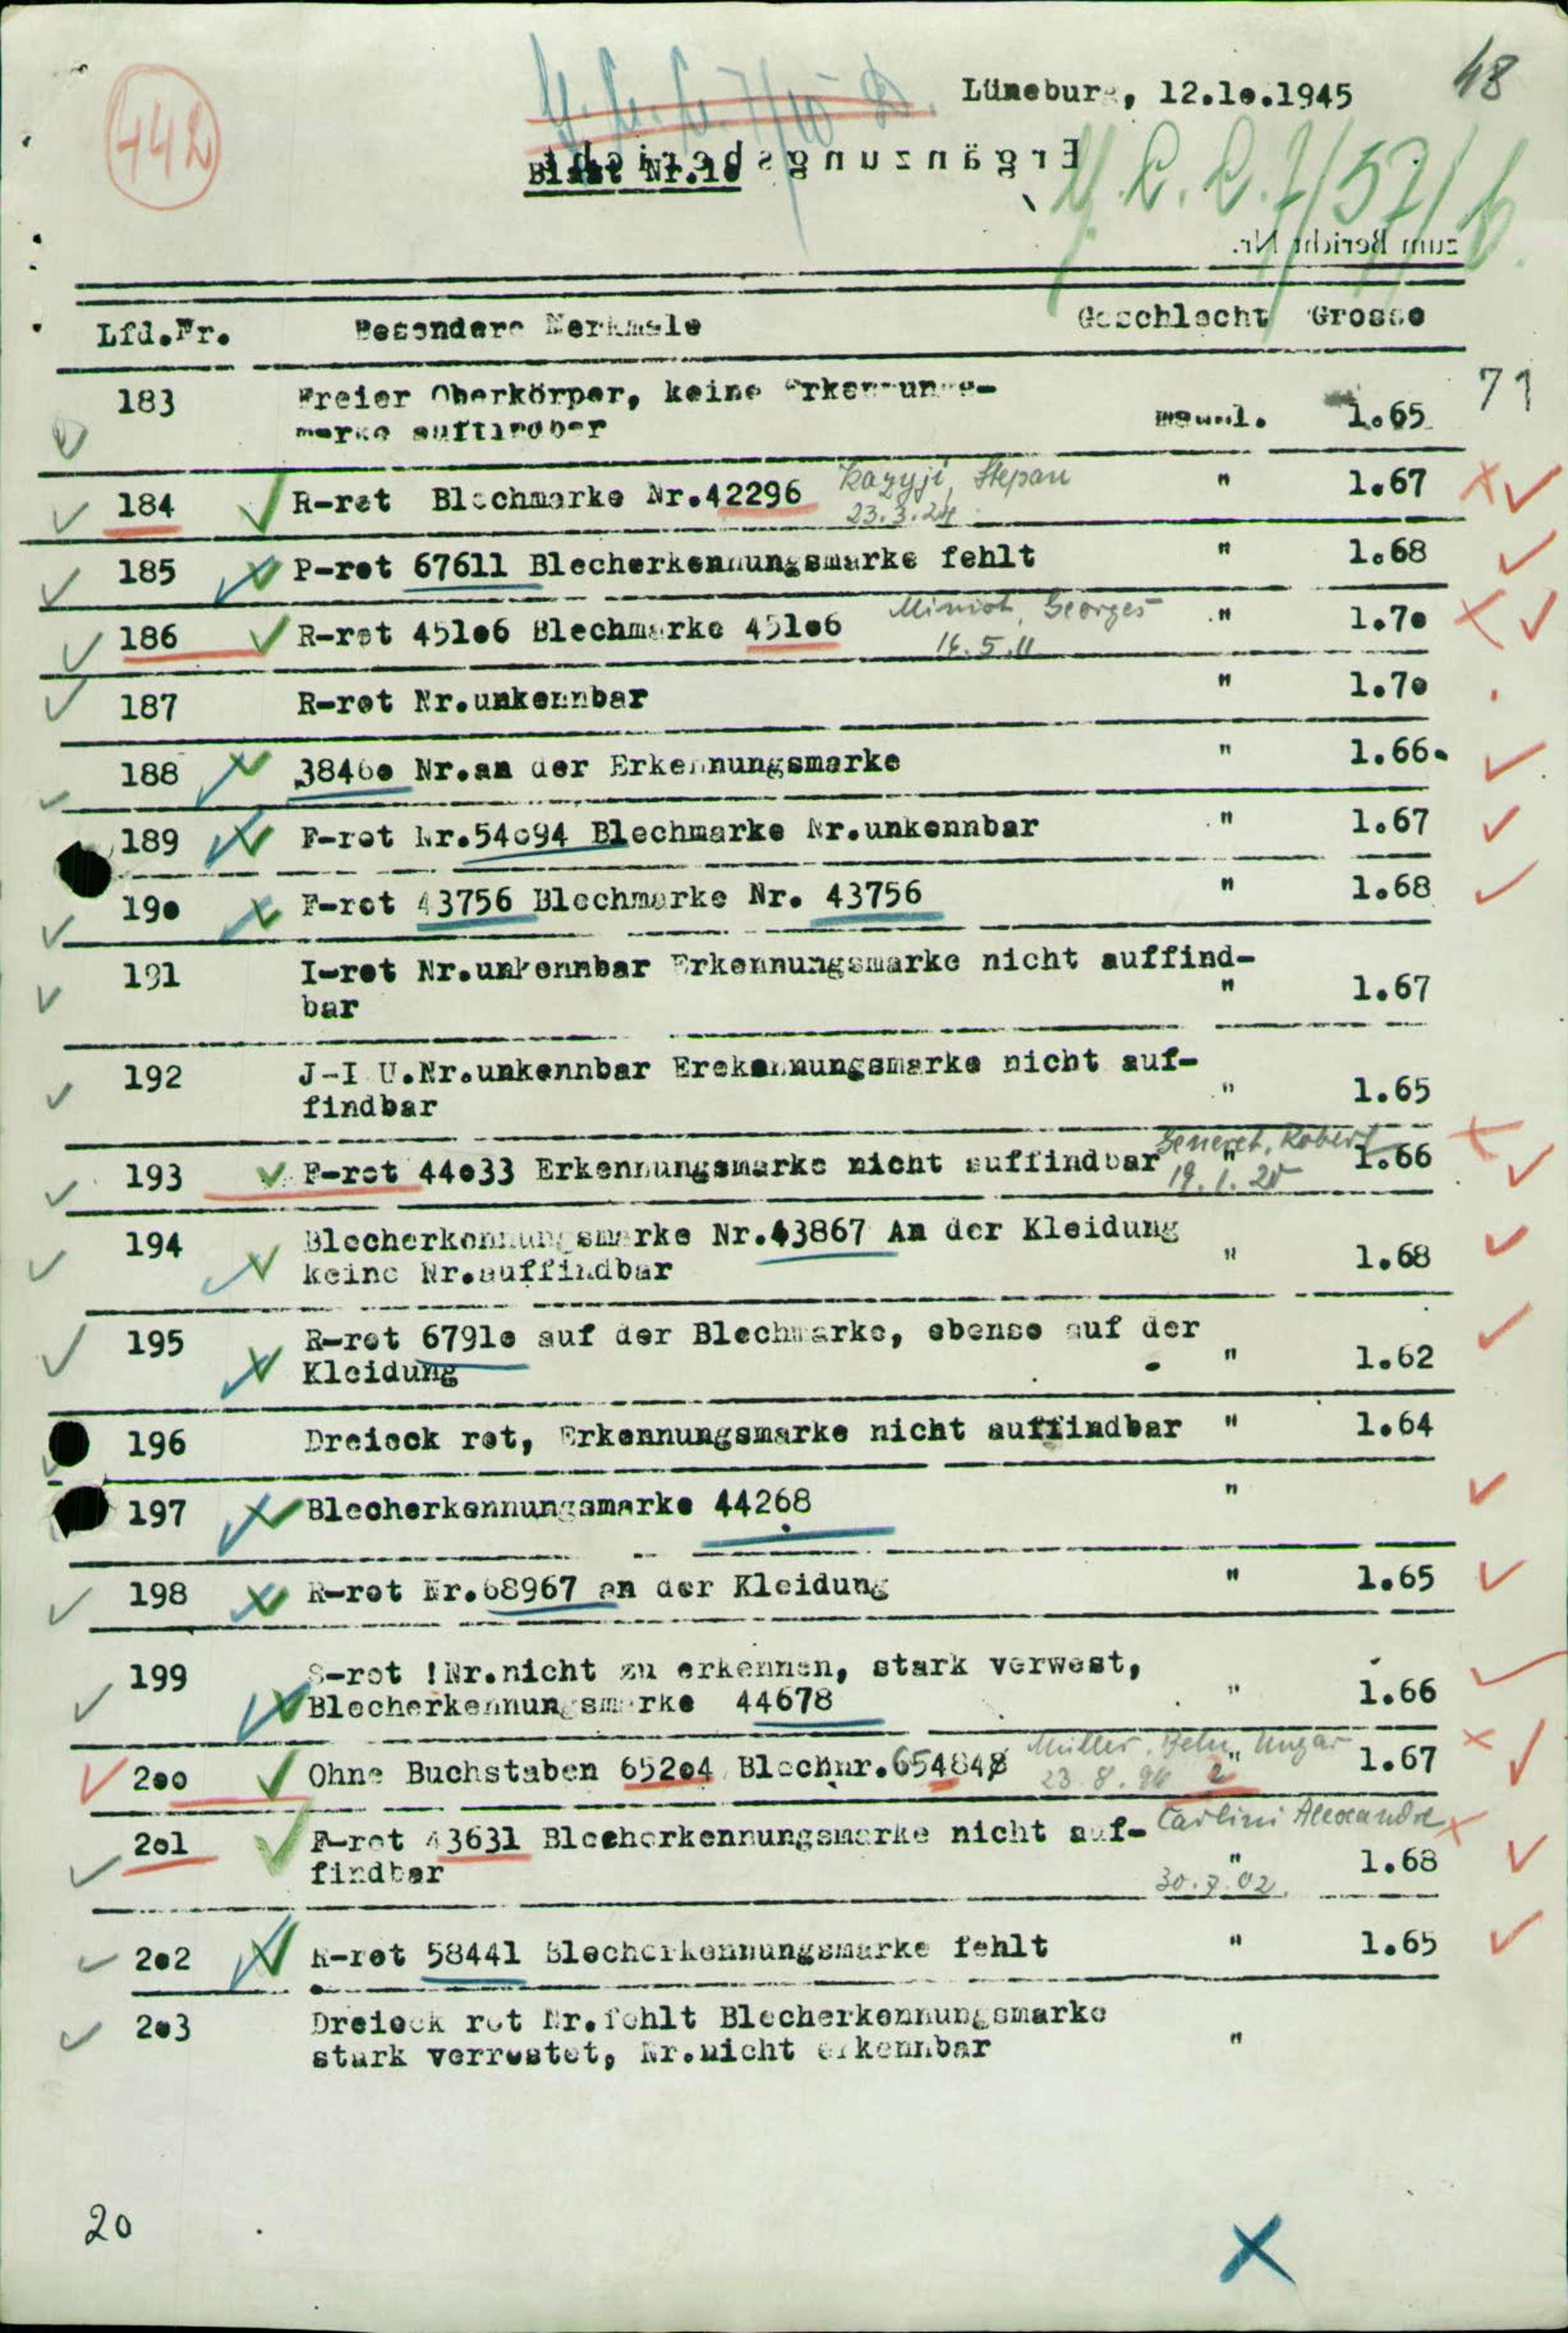 48
Lüneburg, 12.1o.1945
442
Ergänzungsbericht
Blatt Nr.1o
zum Bericht Nr.
Lfd.Nr. Besondere Merkmale Geschlecht Grosse
71
183 Freier Oberkörper, keine Erkennungs-
marke auffindbar maennl. 1.65
184 R-rot Blechmarke Nr.42296 Stepan " 1.67
23.3.24
185 P-rot 67611 Blecherkennungsmarke fehlt " 1.68
186 R-rot 451o6 Blechmarke 451o6 Georges " 1.7o
16.5.11
187 R-rot Nr.unkennbar " 1.7o
188 3846o Nr.an der Erkennungsmarke " 1.66.
189 F-rot Nr.54o94 Blechmarke Nr.unkennbar " 1.67
19o F-rot 43756 Blechmarke Nr. 43756 " 1.68
191 I-rot Nr.unkennbar Erkennungsmarke nicht auffind-
bar " 1.67
192 J-I U.Nr.unkennbar Erekennungsmarke nicht auf-
findbar " 1.65
193 F-rot 44o33 Erkennungsmarke nicht auffindbar Robert " 1.66
19.1.20
194 Blecherkennungsmarke Nr.43867 An der Kleidung
keine Nr.auffindbar " 1.68
195 R-rot 6791o auf der Blechmarke, ebenso auf der
Kleidung " 1.62
196 Dreieck rot, Erkennungsmarke nicht auffindbar " 1.64
197 Blecherkennungsmarke 44268 "
198 R-rot Nr.68967 an der Kleidung " 1.65
199 S-rot !Nr.nicht zu erkennen, stark verwest,
Blecherkennungsmarke 44678 " 1.66
2oo Ohne Buchstaben 652o4 Blechnr.654848 Müller, Ungar " 1.67
2o1 F-rot 43631 Blecherkennungsmarke nicht auf- Carlini Alexandre
findbar 30.7.02. " 1.68
2o2 R-rot 58441 Blecherkennungsmarke fehlt " 1.65
2o3 Dreieck rot Nr.fehlt Blecherkennungsmarke
stark verrostet, Nr.nicht erkennbar "
20